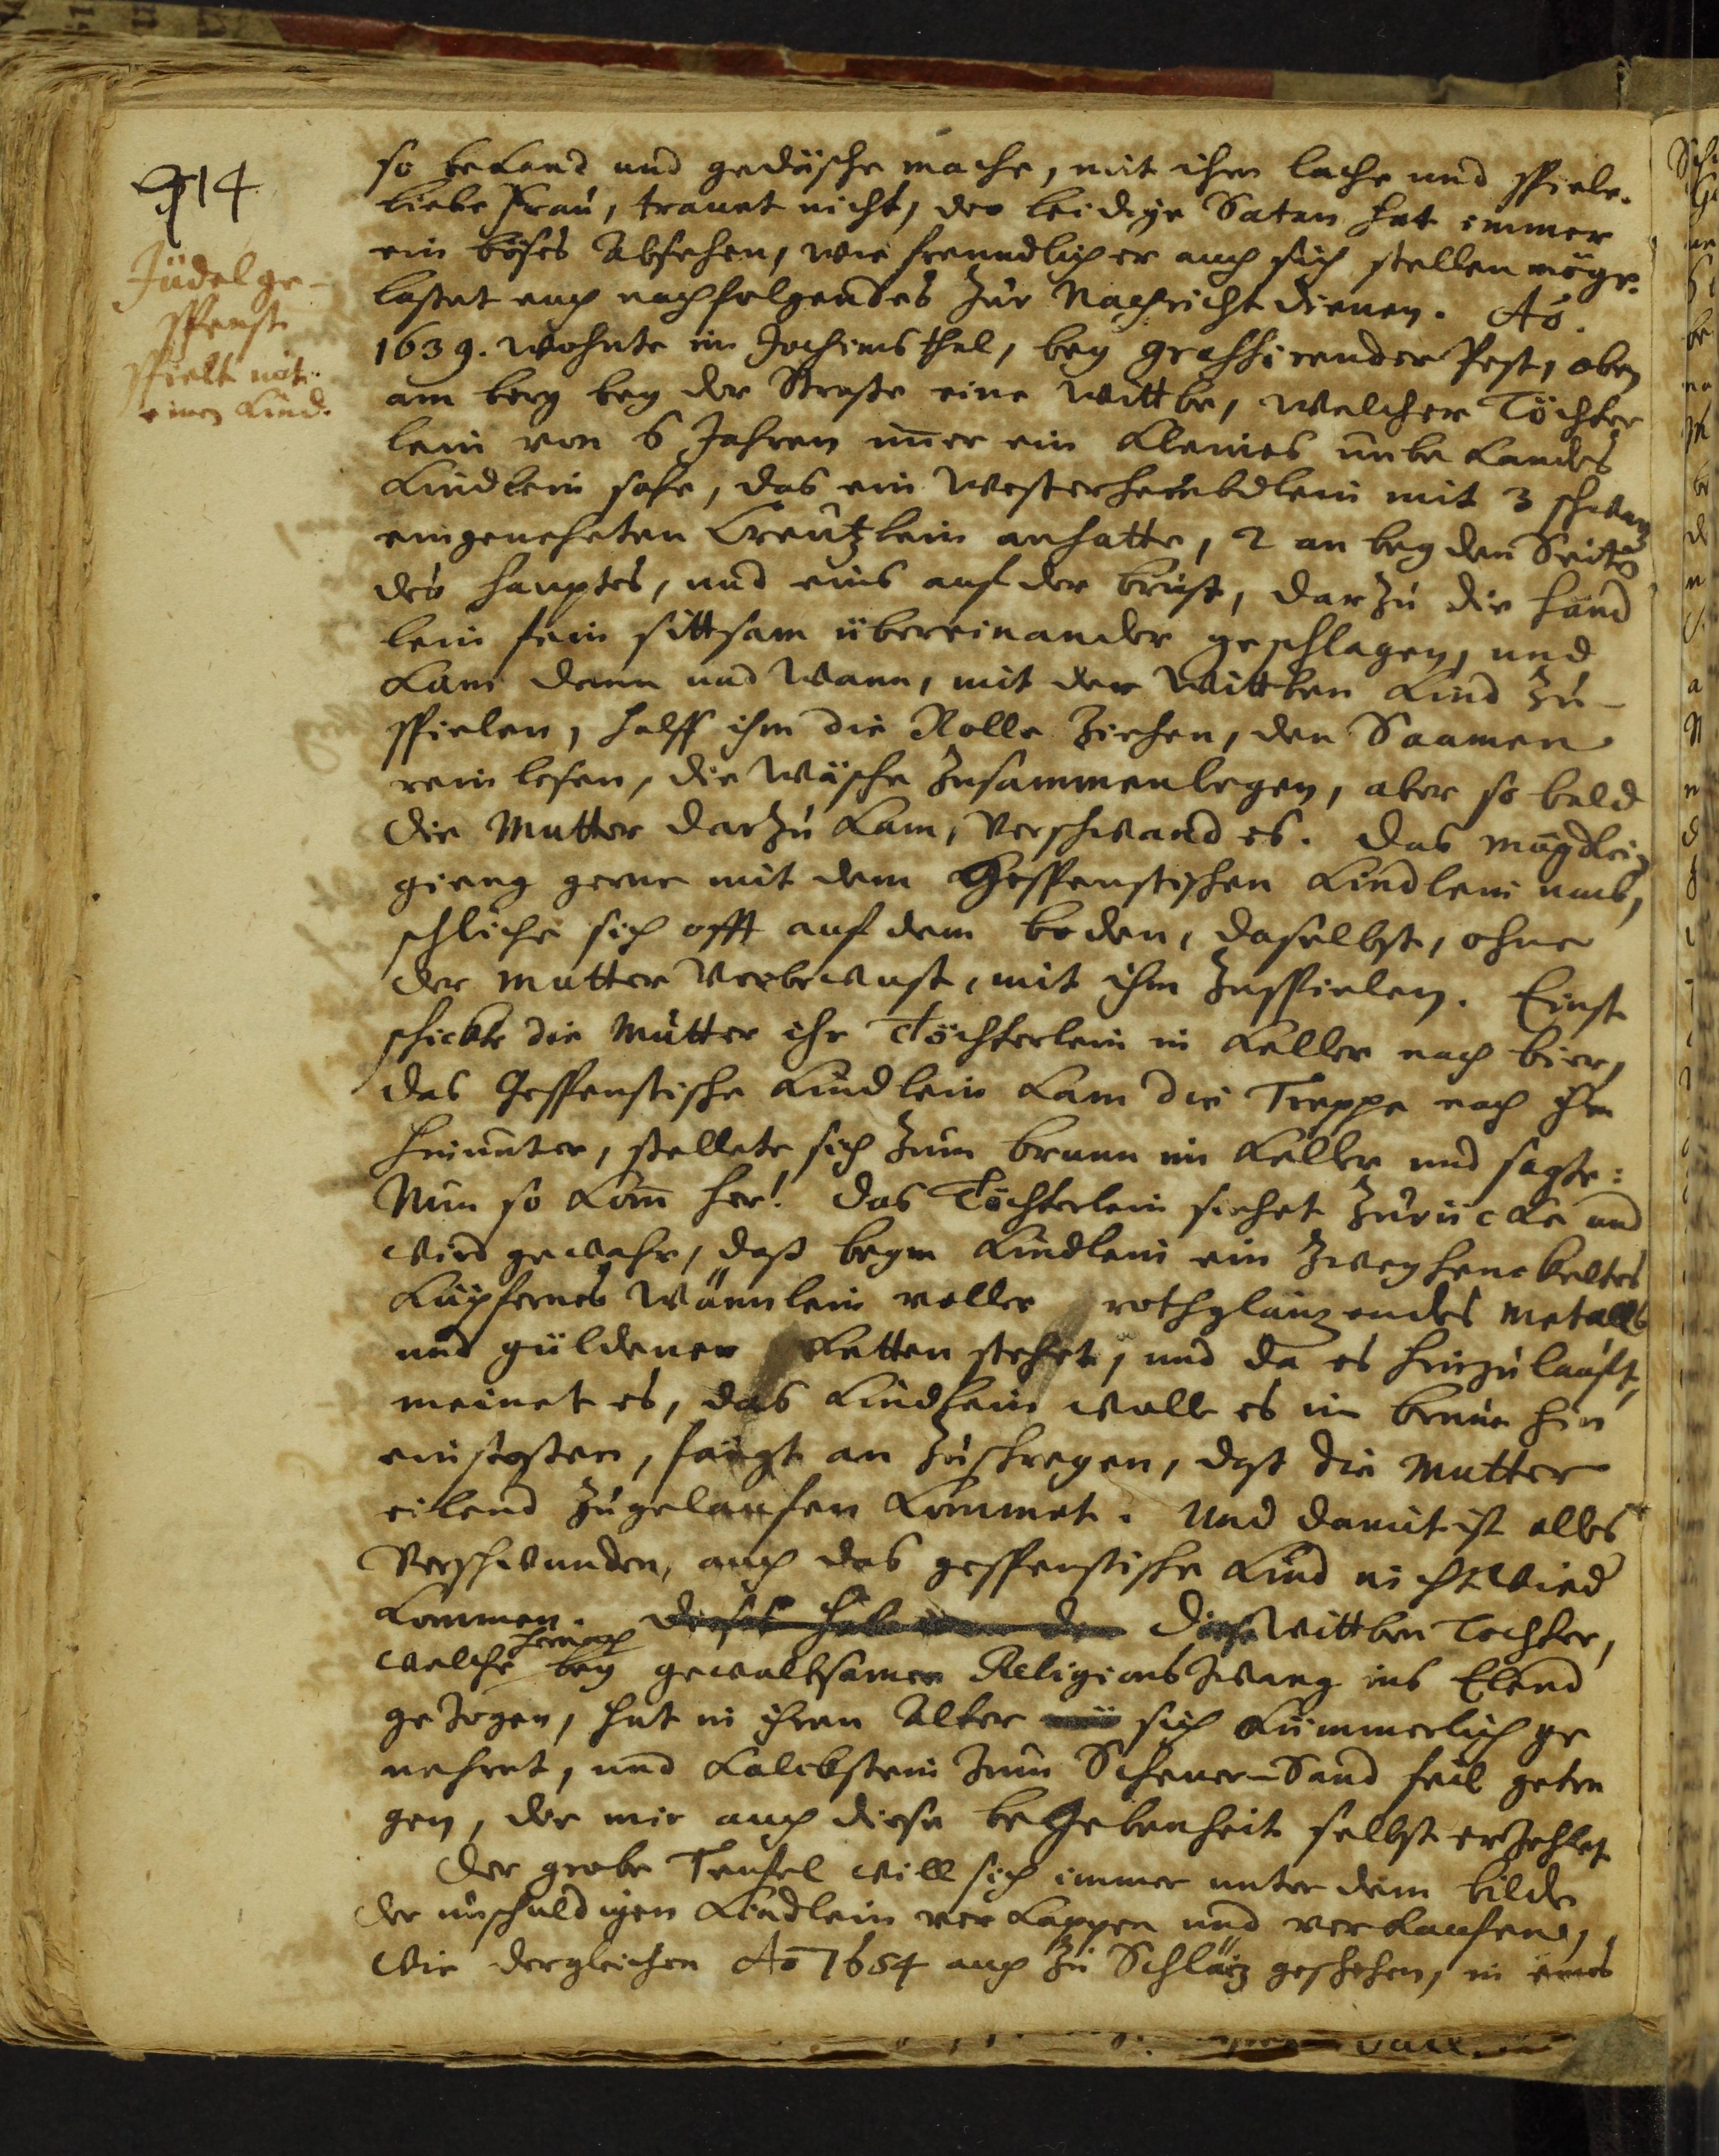 914
Jüdel ge-
spenst
spielt mit
einen Kind.
so bekand und gedäsche mache, mit ihm lache und spiele.
liebe Frau, trauet nicht, der leidige Satan hat immer
ein böses Absehen, wie freundlich er auch sich stellen möge.
lasset euch nachfolgendes zur Nachricht dienen. Aō.
1639. wohnte im Jochimsthal, bey grassirender Pest, oben
am berg bey der Strasse eine Wittbe, welcher Töchter
lein von 6 Jahren im̄er ein kleines unbekandes
Kindlein sahe, das ein Westerhembdlein mit 3 schwartz
eingeneheten Creützlein anhatte, 2 an beyden Seiten
des Hauptes, und eins auf der brust, darzu die Händ
lein fein sittsam übereinander geschlagen, und
kam dann und wann, mit der Wittben Kind zu-
spielen, halff ihm die Rolle ziehen, den Saamen
rein lesen, die Wäsche zusammenlegen, aber so bald
die Mutter darzu kam, verschwand es. Das Mägdlein
gieng gerne mit dem Gespenstischen Kindlein umb,
schliche sich offt auf dem boden, daselbst, ohne
der Mutter Vorbewust, mit ihm zuspielen. Einst
schickte die Mutter ihr Töchterlein in Keller nach bier,
das Gespenstische Kindlein kam die Treppe nach ihm
hinunter, stellete sich zum brunn im Keller und sagte:
Nun so kom̄ her! Das Töchterlein siehet zurücke und
wird gewahr, daß beym Kindlein ein zweyhenckeltes
Kupfernes Wännlein voller rothglänzendes Metalls
und güldener Ketten stehet, und da es hinzulaufft,
meinet es, das Kindlein wolle es in brunn hin
einstossen, fängt an zuschreyen, daß die Mutter
eilend zugelauffen kommet. Und damit ist alles
verschwunden, auch das gespenstische Kind nicht wieder
kommen. Diese Wittben Tochter,
welche hernach bey gewaltsamer Religionszwang ins Elend
gezogen, hat in ihren Alter sich kümmerlich ge
nehret, und Kalckstein zum Scheuer-Sand feil getra
gen, der mir auch diese begebenheit selbst erzehlet
Der grobe Teufel will sich immer unter dem bilde
der unschuldigen Kindlein verkappen und verkauffen,
wie dergleichen Aō 1654 auch zu geschehen, in eines